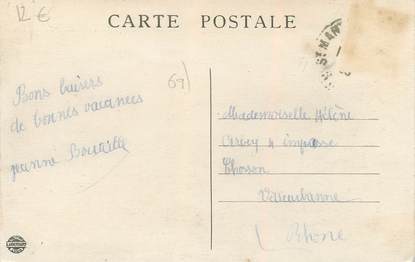 12 €
CARTE POSTALE
ST MAN
69
Bons baisers
de bonnes vacances
Jeanne
Mademoiselle Hélène
4 impasse
Villeurbanne
Rhône